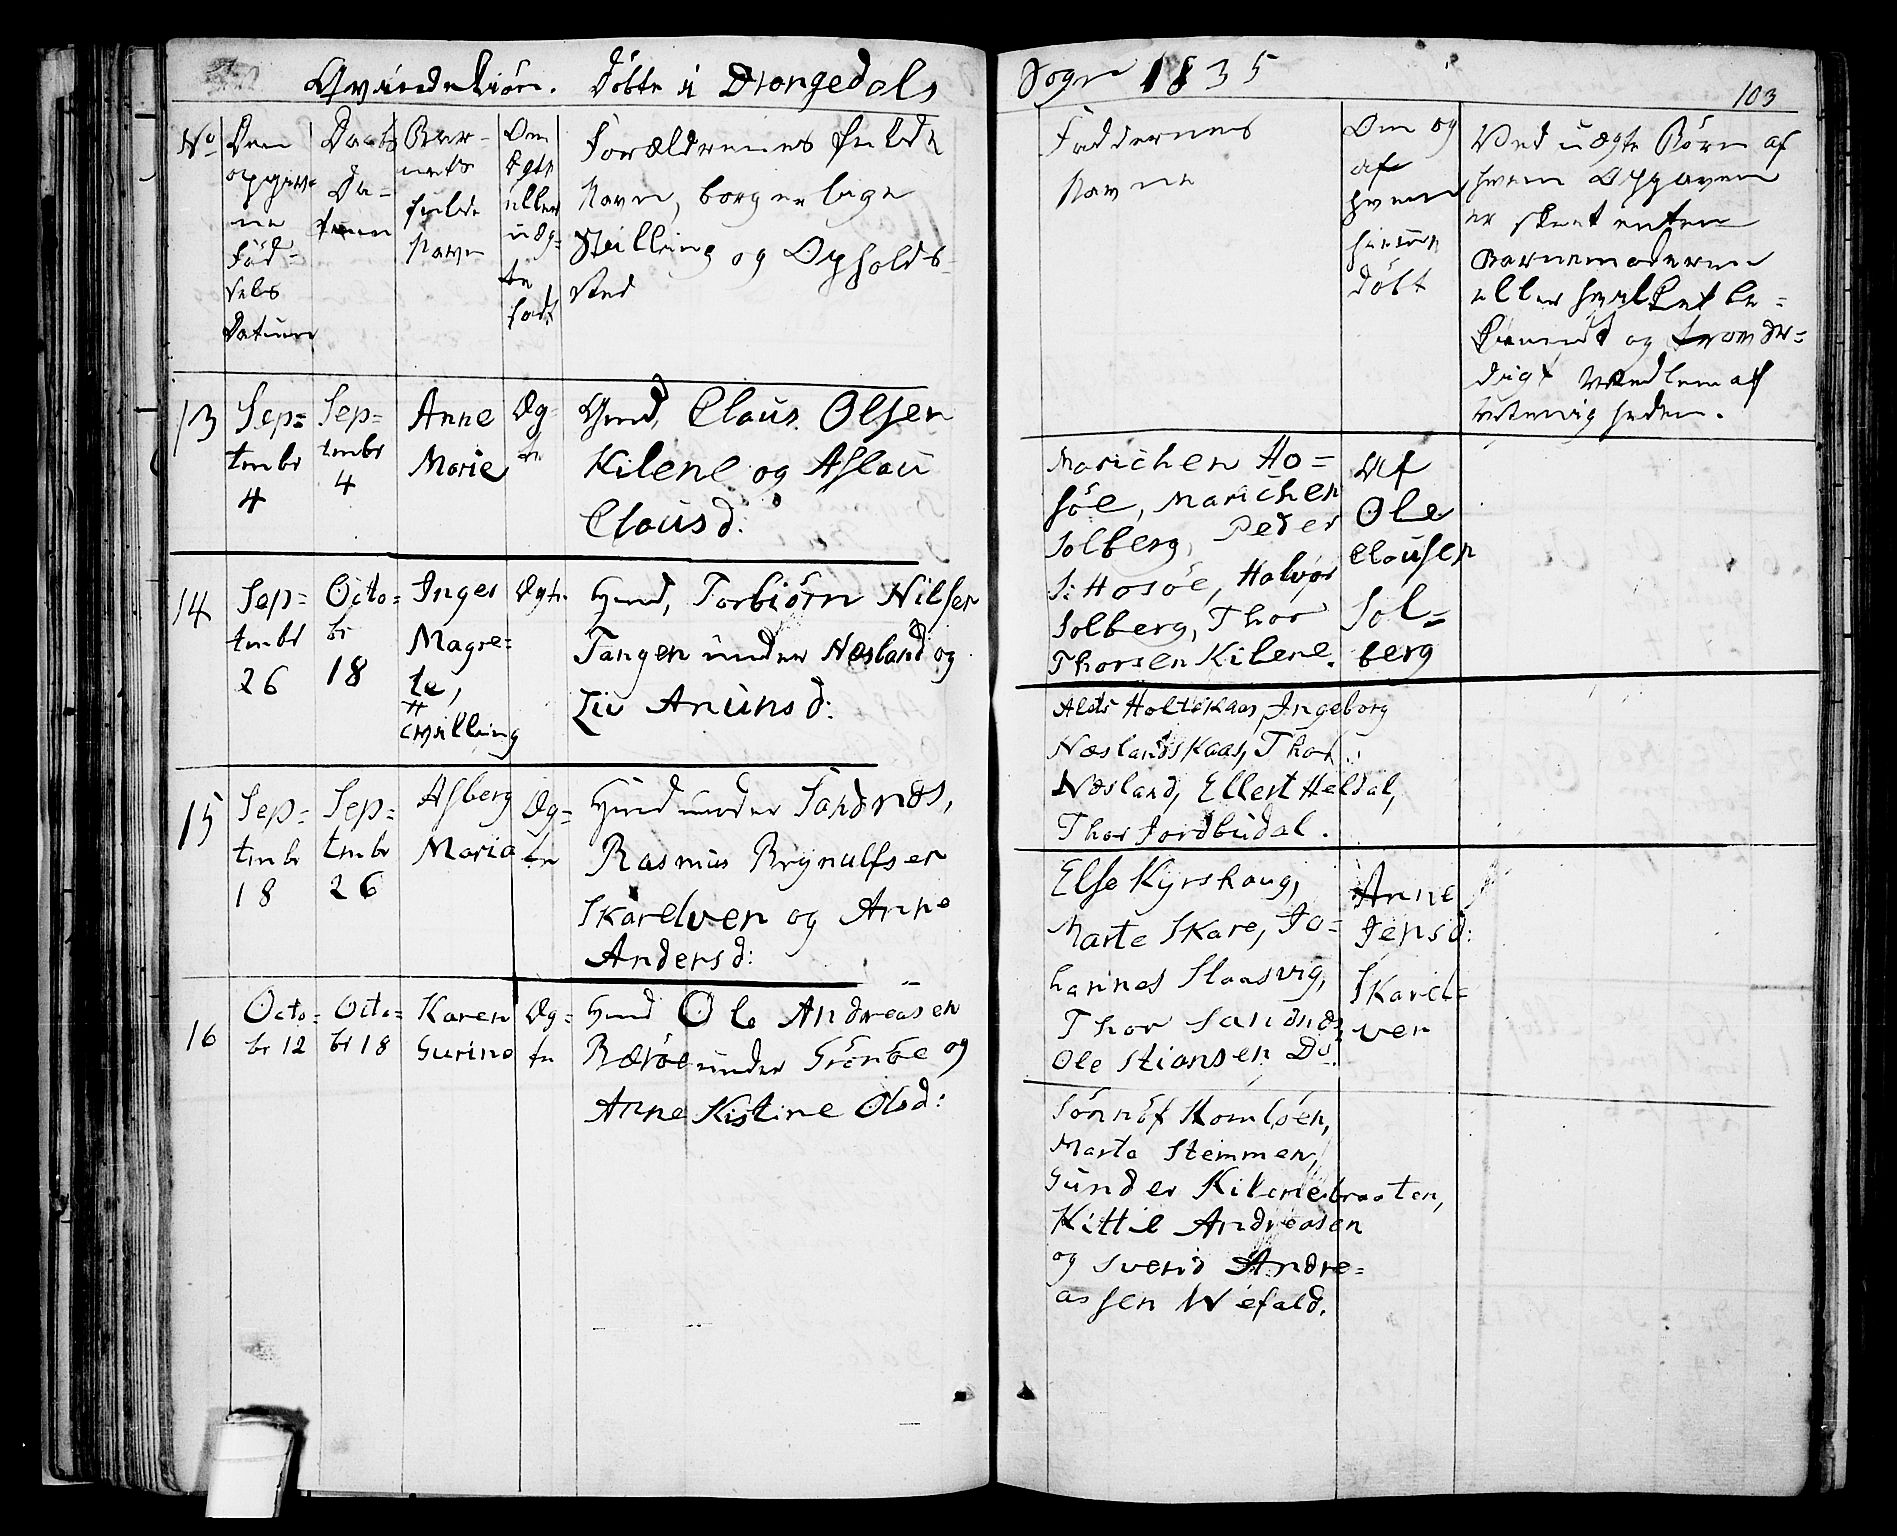 Qvindekiön. Döbte i Drongedals
Sogn 1835
103
No
Den
opgiv=
ne
Föd=
sels
Datum
Daabs
Da=
tum
Bar=
nets
fulde
Navn
Om
Ægte
eller
uæg=
te
född
Forældrenes fulde
Navn, borgerlige
Stilling og Opholds=
sted
Faddernes
Navne
Om og
af
hvem
hjemme
döbt
Ved uægte Börn af
hvem Opgaven
er skeet enten
Barnemoderen
eller hvilket be=
kiendt og troevær=
digt Medlem af
Menigheden.
13
Sep=
tmbr
4
Sep=
tmbr
4
Anne
Marie
Æg=
te
Gmd, Claus Olsen
Kilene og Aslau
Clausd:
Marichen Ho=
söe, Marichen
Solberg, Peder
S: Hosöe, Halvor
Solberg, Thor
Thorsen Kilene.
Af
Ole
Clausen
Sol=
berg
14
Sep=
tmbr
26
Octo=
br
18
Inger
Magre=
te,
tvilling
Ægte
Hmd, Torbiörn Nilsen
Tangen under Næsland og
Liv Anunsd:
Holtekaas, Ingeborg
Næslandskaas, Thor
Næsland, Ellert Heldal,
Thor Jordbudal.
15
Sep=
tmbr
18
Sep=
tmbr
26
Asberg
Maria
Æg=
te
Hmd under Sandnæs,
Rasmus Brynulfsen
Skarelven og Anne
Andersd:
Else Kyrshaug,
Marte Skare, Jo=
hannes Slaasvig,
Thor Sandnæs,
Ole Stiansen Do.
Anne
Jensd:
Skarel=
ven
16
Octo=
br 12
Octo=
br 18
Karen
Gurine
Æg=
te
Hmd Ole Andreasen
Bæröe under Grönbe og
Anne Kistine Olsd:
Sönnöf Homlöen,
Marta Stemmen,
Gunder Kilenebraaten,
Kittil Andreasen
og Svend Andre=
assen Wefald.